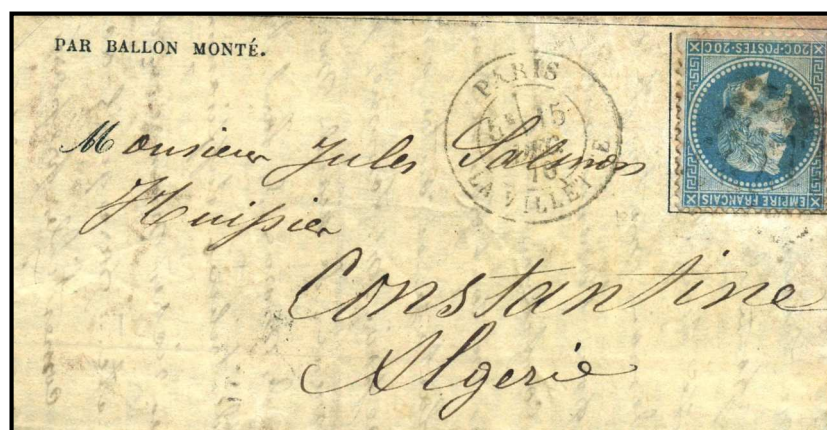 PAR BALLON MONTÉ.
PARIS
15
DEC
70
LA VILLETTE
20C-POSTES-20C
EMPIRE FRANÇAIS
Monsieur Jules Salmon
Huissier
Constantine
Algerie